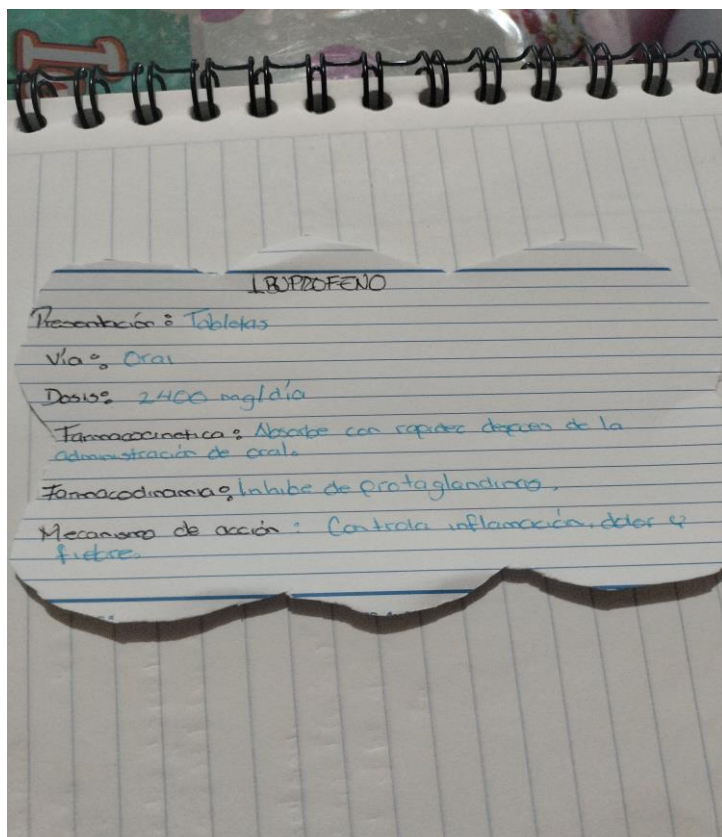 IBUPROFENO
Presentación: Tabletas
Vía: Oral
Dosis: 2400 mg/día
Farmacocinetica: Absorbe con rapidez depues de la
administración de oral.
Farmacodinamia: Inhibe de protaglandinas.
Mecanismo de acción: Controla inflamación, dolor y
fiebre.